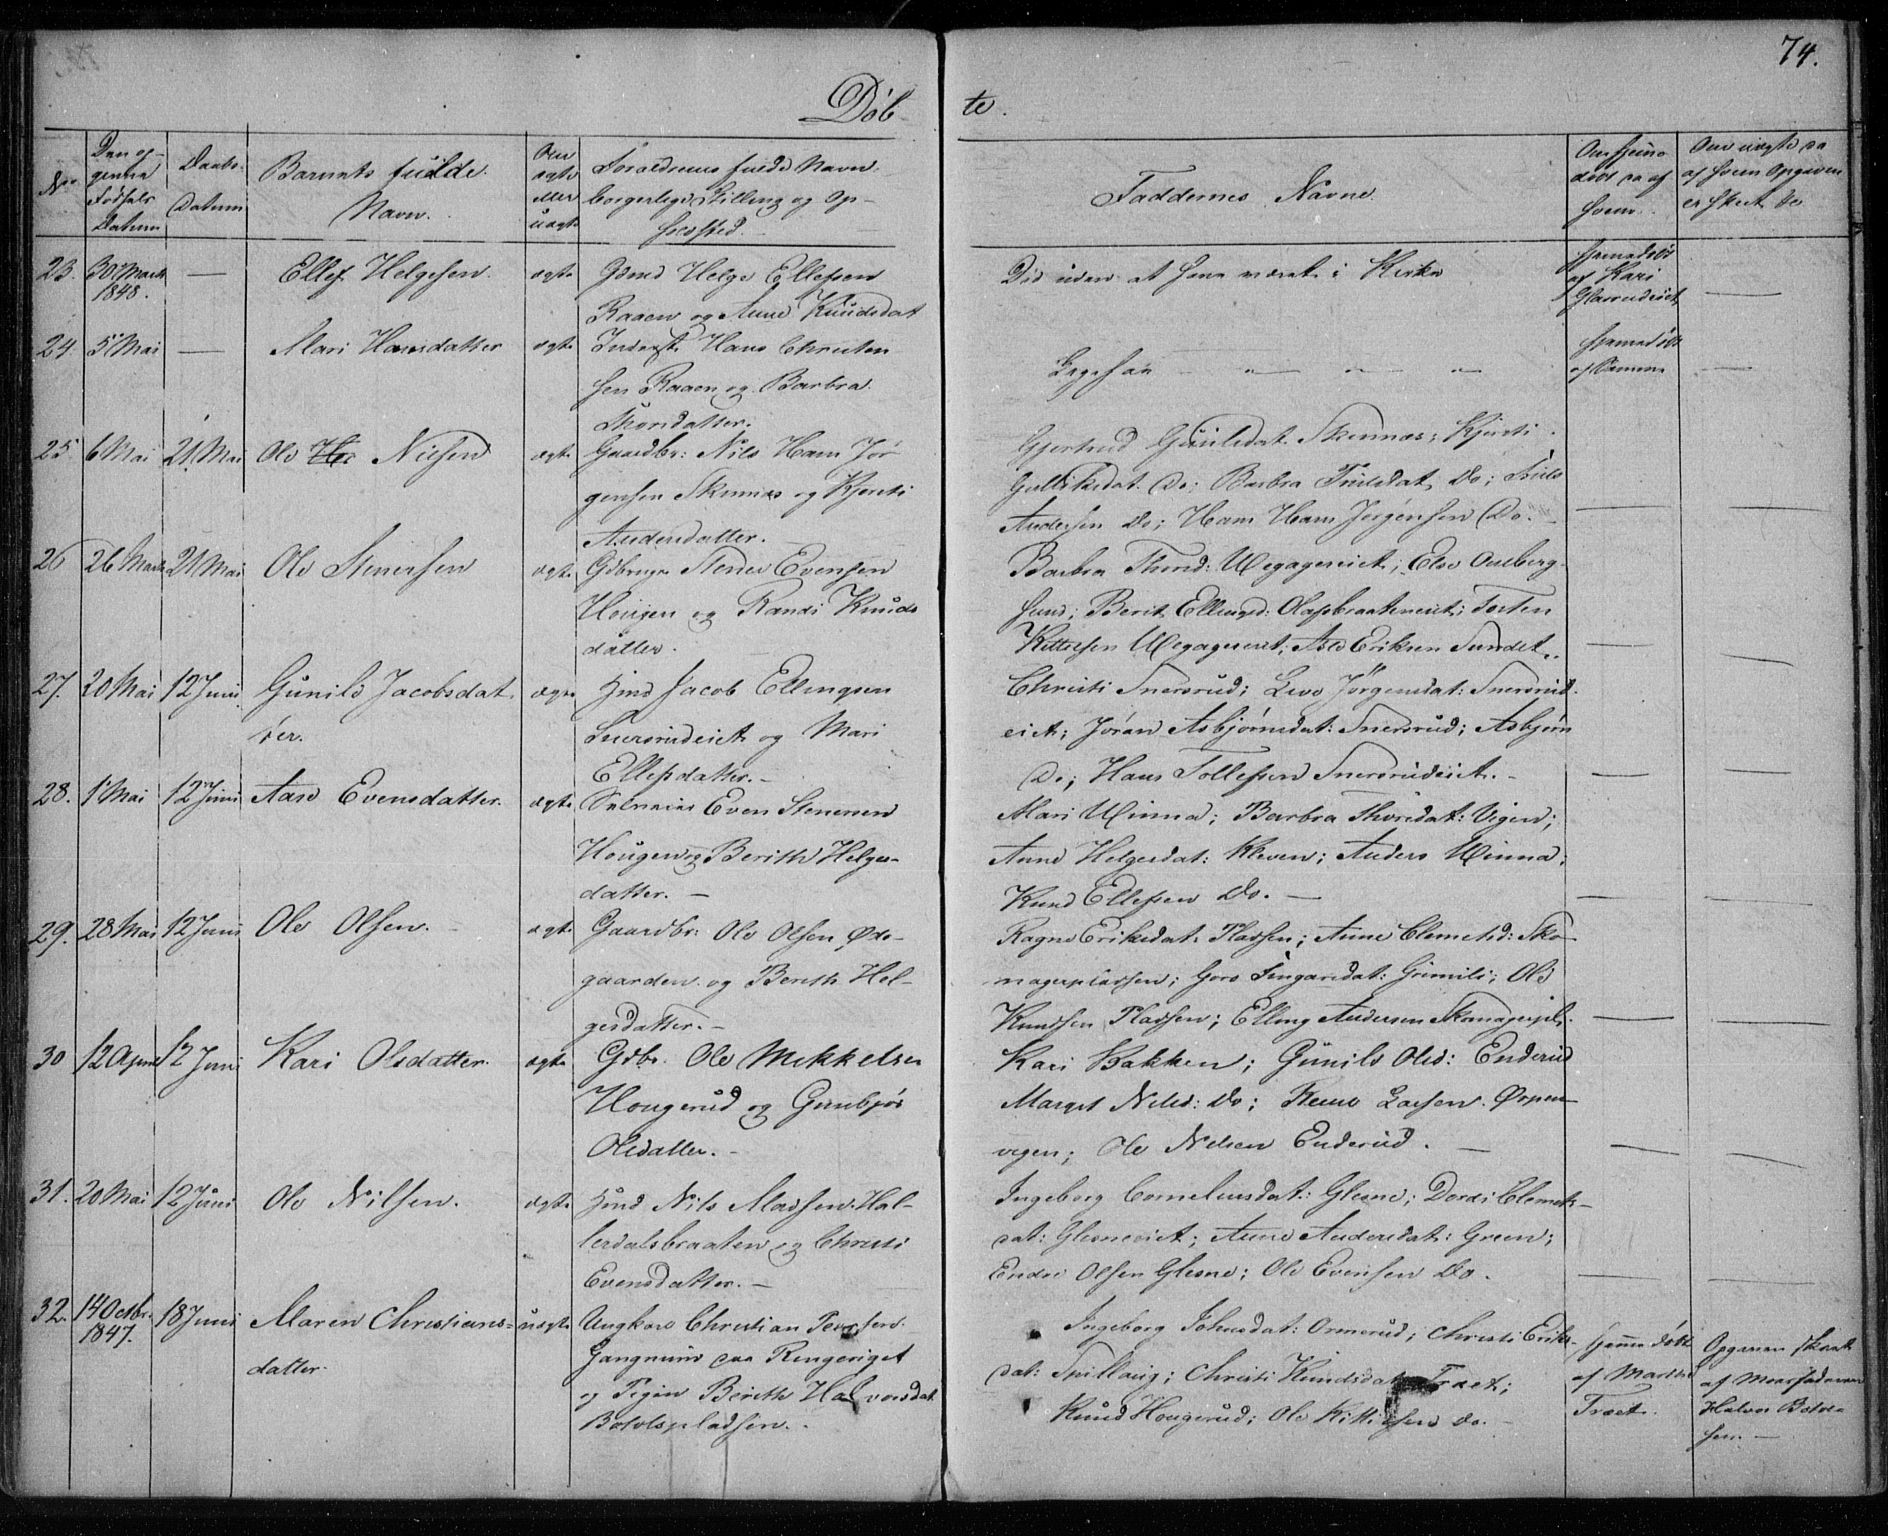 74.
Døb
te.
No
Den op-
givne
Fødsels
Datum
Daabs
Datum
Barnets fulde
Navn.
Om
ægte
eller
uægte
Forældrenes fulde Navn
borgerlige Stilling og Op-
holdsted.
Faddernes Navne
Om hjemme
døbt da af
hvem
Om uægte da
af hvem Opgaven
er skeet &c
23. 30 Marts 1848. — Ellef Helgesen ægte Gbmd Helge Ellefsen
Raaen og Anne Knudsdat
Død uden at have været i Kirke
hjemmedøbt
af Kari
—
24 5 Mai — Mari Hansdatter ægte Inderst Hans Christen
sen Raaen og Barbra
Thorsdatter.
Ligesaa — " — " — " —
hjemmedøbt
—
25 6 Mai 21 Mai Ole Nilsen ægte Gaardbr: Nils Hans Jør
gensen Skinnes og Kjersti
Andersdatter.
Gjertrud Gunilsdat. Skinnes; Kjersti
Gulliksdat. Do; Barbra Truelsdat Do; Truls
Andersen Do; Hans Hans Jørgensen Do. —
26 26 Marts 21 Mai Ole Stenersen ægte Gdbruger Stener Evensen
Hougen og Randi Knuds
datter.
Barbra Thorsd: eiet; Else Aaberg
hund; Berit Ellingsd: Olafsbraateneiet; Torsten
Kittelsen eiet; Asle Eriksen Sundet.
27. 20 Mai 12 Juni Gunild Jacobsdat
ter.
ægte Hmd Jacob Ellingsen
Snersrudeiet og Mari
Ellefsdatter. —
Christi Snersrud; Live Jörgensdat: Snersrud-
eiet; Jöran Asbjörnsdat: Snersrud; Asbjørn
Do; Hans Tollefsen Snersrudeiet. —
28. 1 Mai 12 Juni Aase Evensdatter. ægte Even Stenersen
Hougen og Berith Helges-
datter. —
Mari Winna; Barbra Thorsdat: Vigen;
Anne Helgesdat: Kleven; Anders Winna;
Knud Ellefsen Do. —
29. 28 Mai 12 Juni Ole Olsen. ægte Gaardbr: Ole Olsen Øde-
gaarden og Berith Hel-
gesdatter. —
Ragne Eriksdat: Pladsen; Anne Clemetsd: Sko-
magerpladsen; Goro Fingarsdat: Grimeli; Ole
Knudsen Pladsen; Elling Andersen Skomagerpl.
30 12 April 12 Juni Kari Olsdatter. ægte Gdbr. Ole Mikkelsen
Hougerud og Gunbjør
Olsdatter. —
Kari Bakken; Gunild Olsd: Enderud
Marget Nilsd: Do; Larsen Ørpen-
vegen; Ole Nilsen Enderud. —
31. 20 Mai 12 Juni Ole Nilsen. ægte Hmd Nils Madsen Hal-
lerdalsbraaten og Christi
Evensdatter. —
Ingeborg Corneliusdat: Glesne; Dordi Clemets-
dat: Glesneeiet; Anne Andersdat: Green;
Endre Olsen Glesne; Ole Evensen Do.
32. 14 Octbr. 1847. 18 Juni Maren Christians-
datter
uægte Ungkarl Christian Pedersen
Gangnum paa Ringeriget
og Pigen Berith Halvorsdat
Botolspladsen.
Ingeborg Johnsdat: Ormerud; Christi Eriks-
dat: Spillaug; Christi Knudsdat: Træet;
Knud Hougerud; Ole Kittelsen do. —
hjemmedøbt
af Marthe
Træet.
Opgaven skeet
af Morfaderen
Halvor Botol-
sen. —